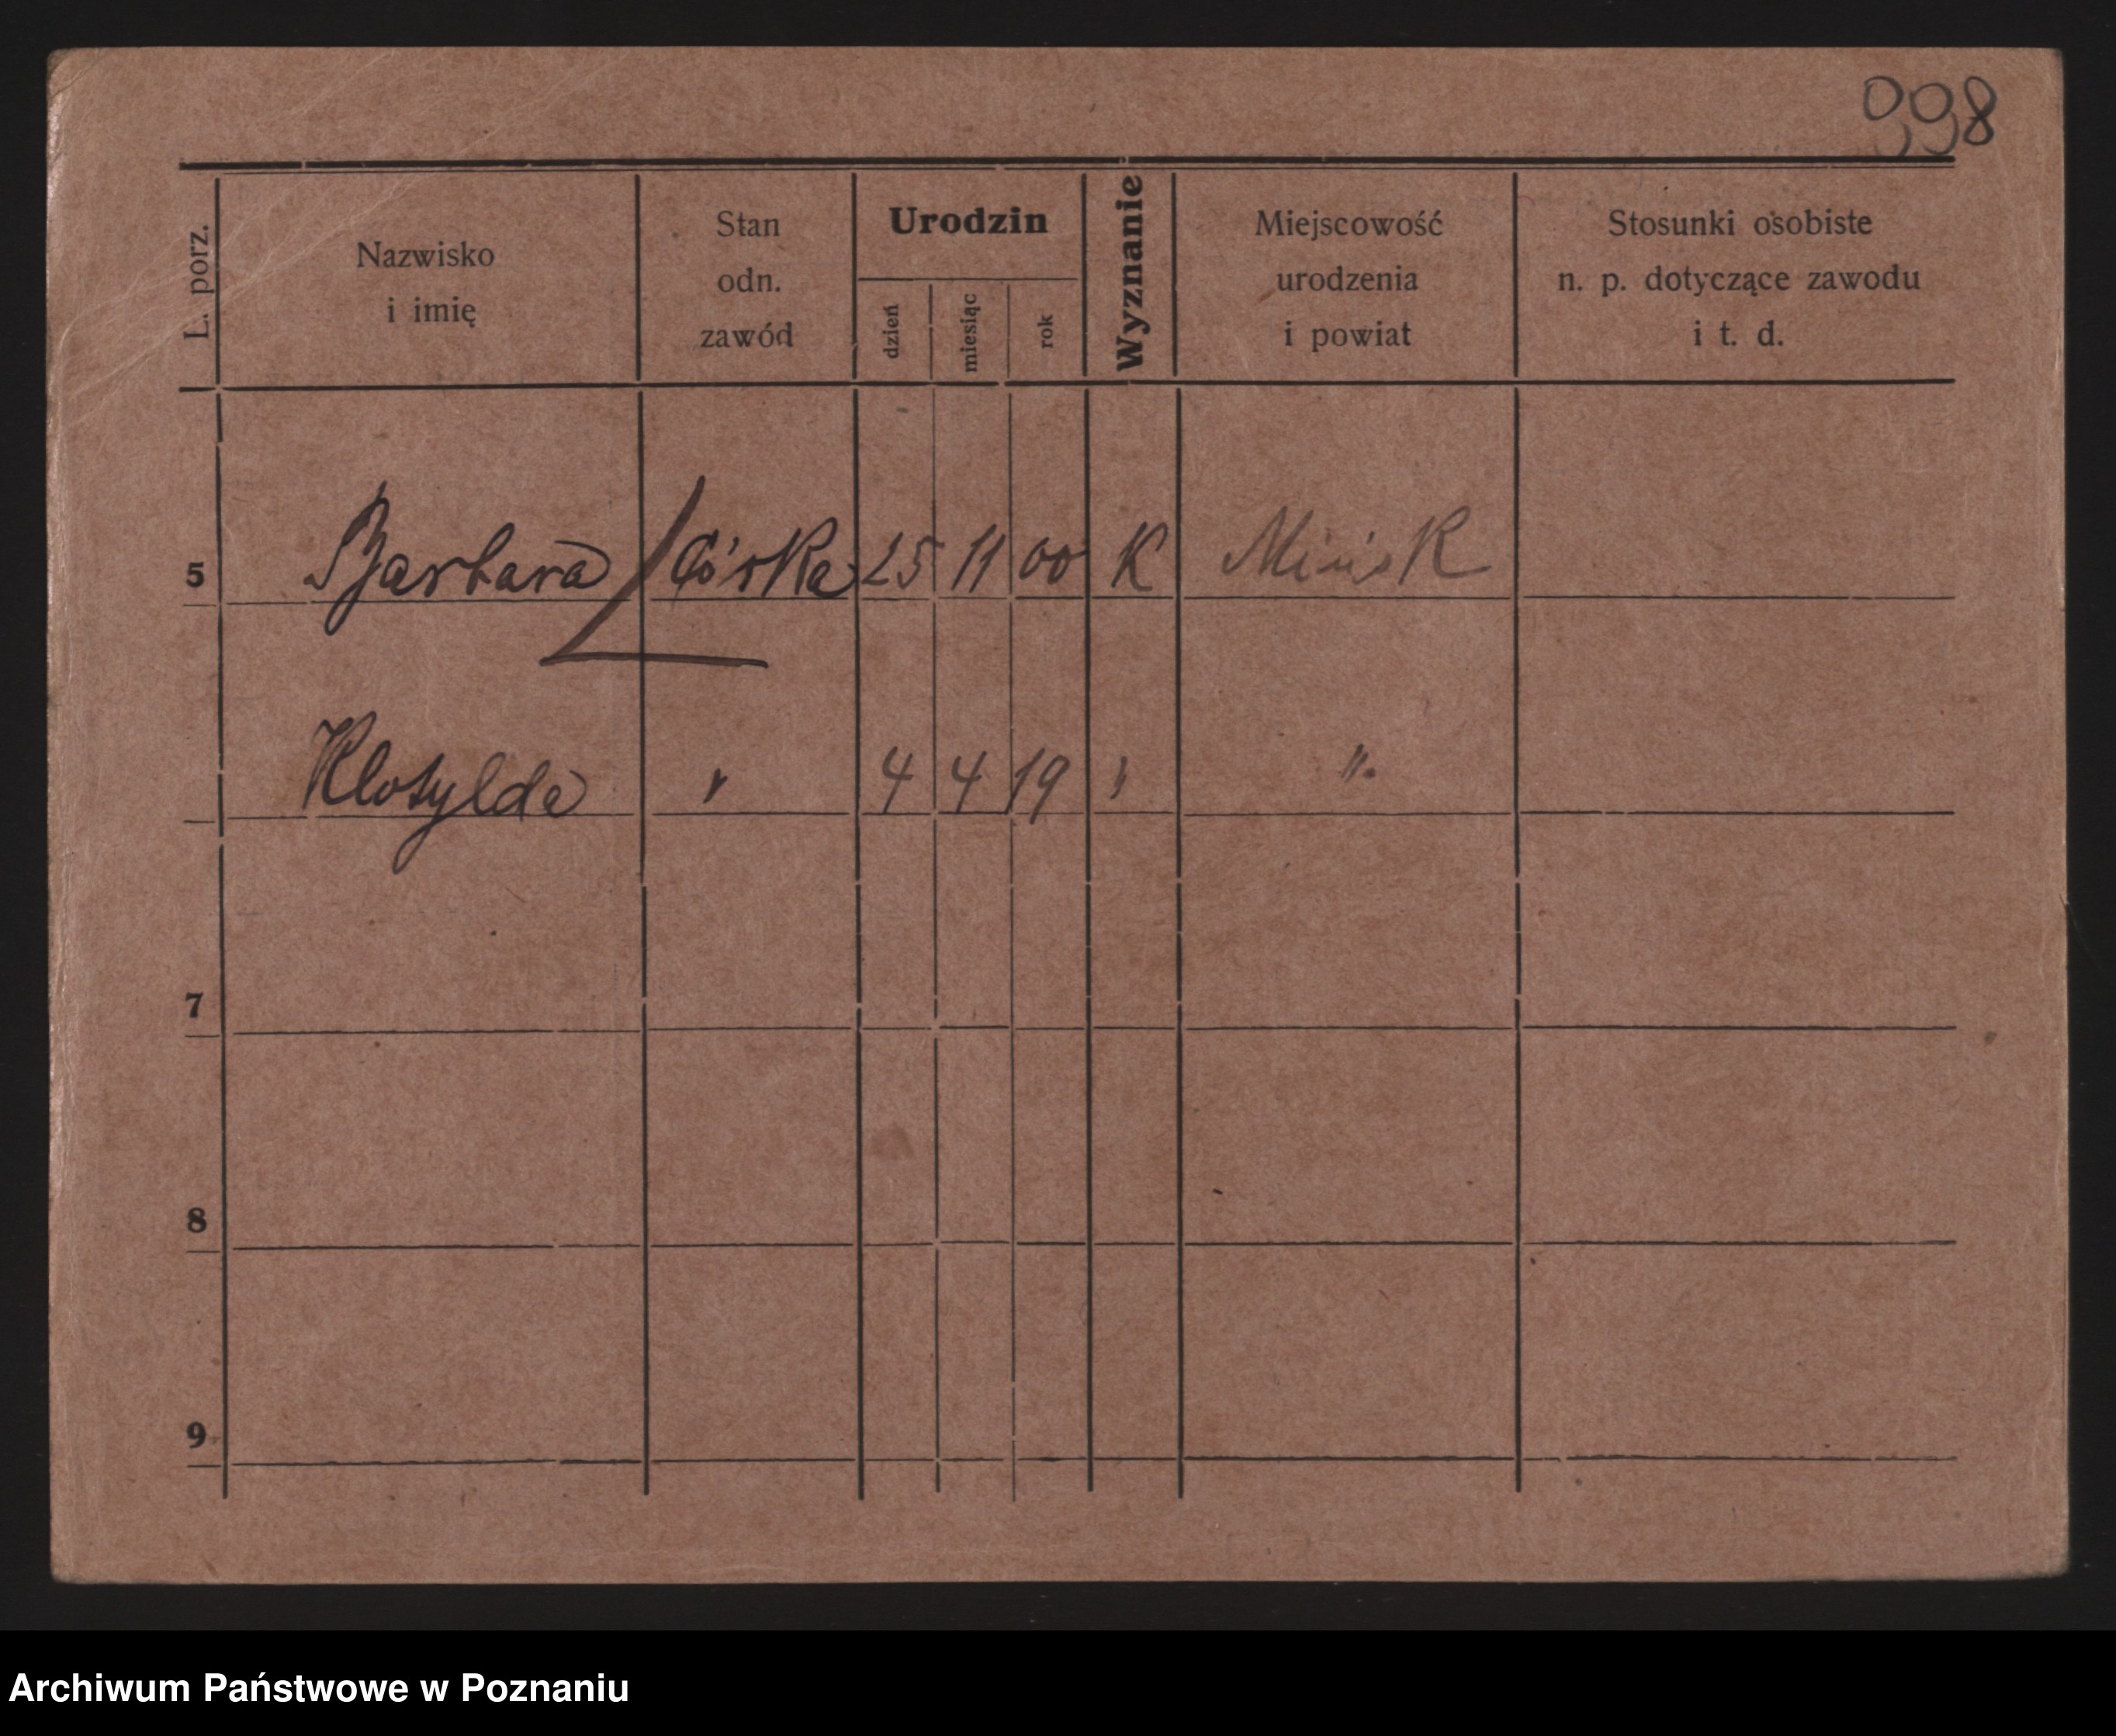 998
L. porz.
Nazwisko
i imię
Stan
odn.
zawód
Urodzin
dzień
miesiąc
rok
Wyznanie
Miejscowość
urodzenia
i powiat
Stosunki osobiste
n. p. dotyczące zawodu
i t. d.
5 Barbara córka 25 11 00 K Mińsk
Klotylda " 4 4 19 " "
7
8
9
Archiwum Państwowe w Poznaniu